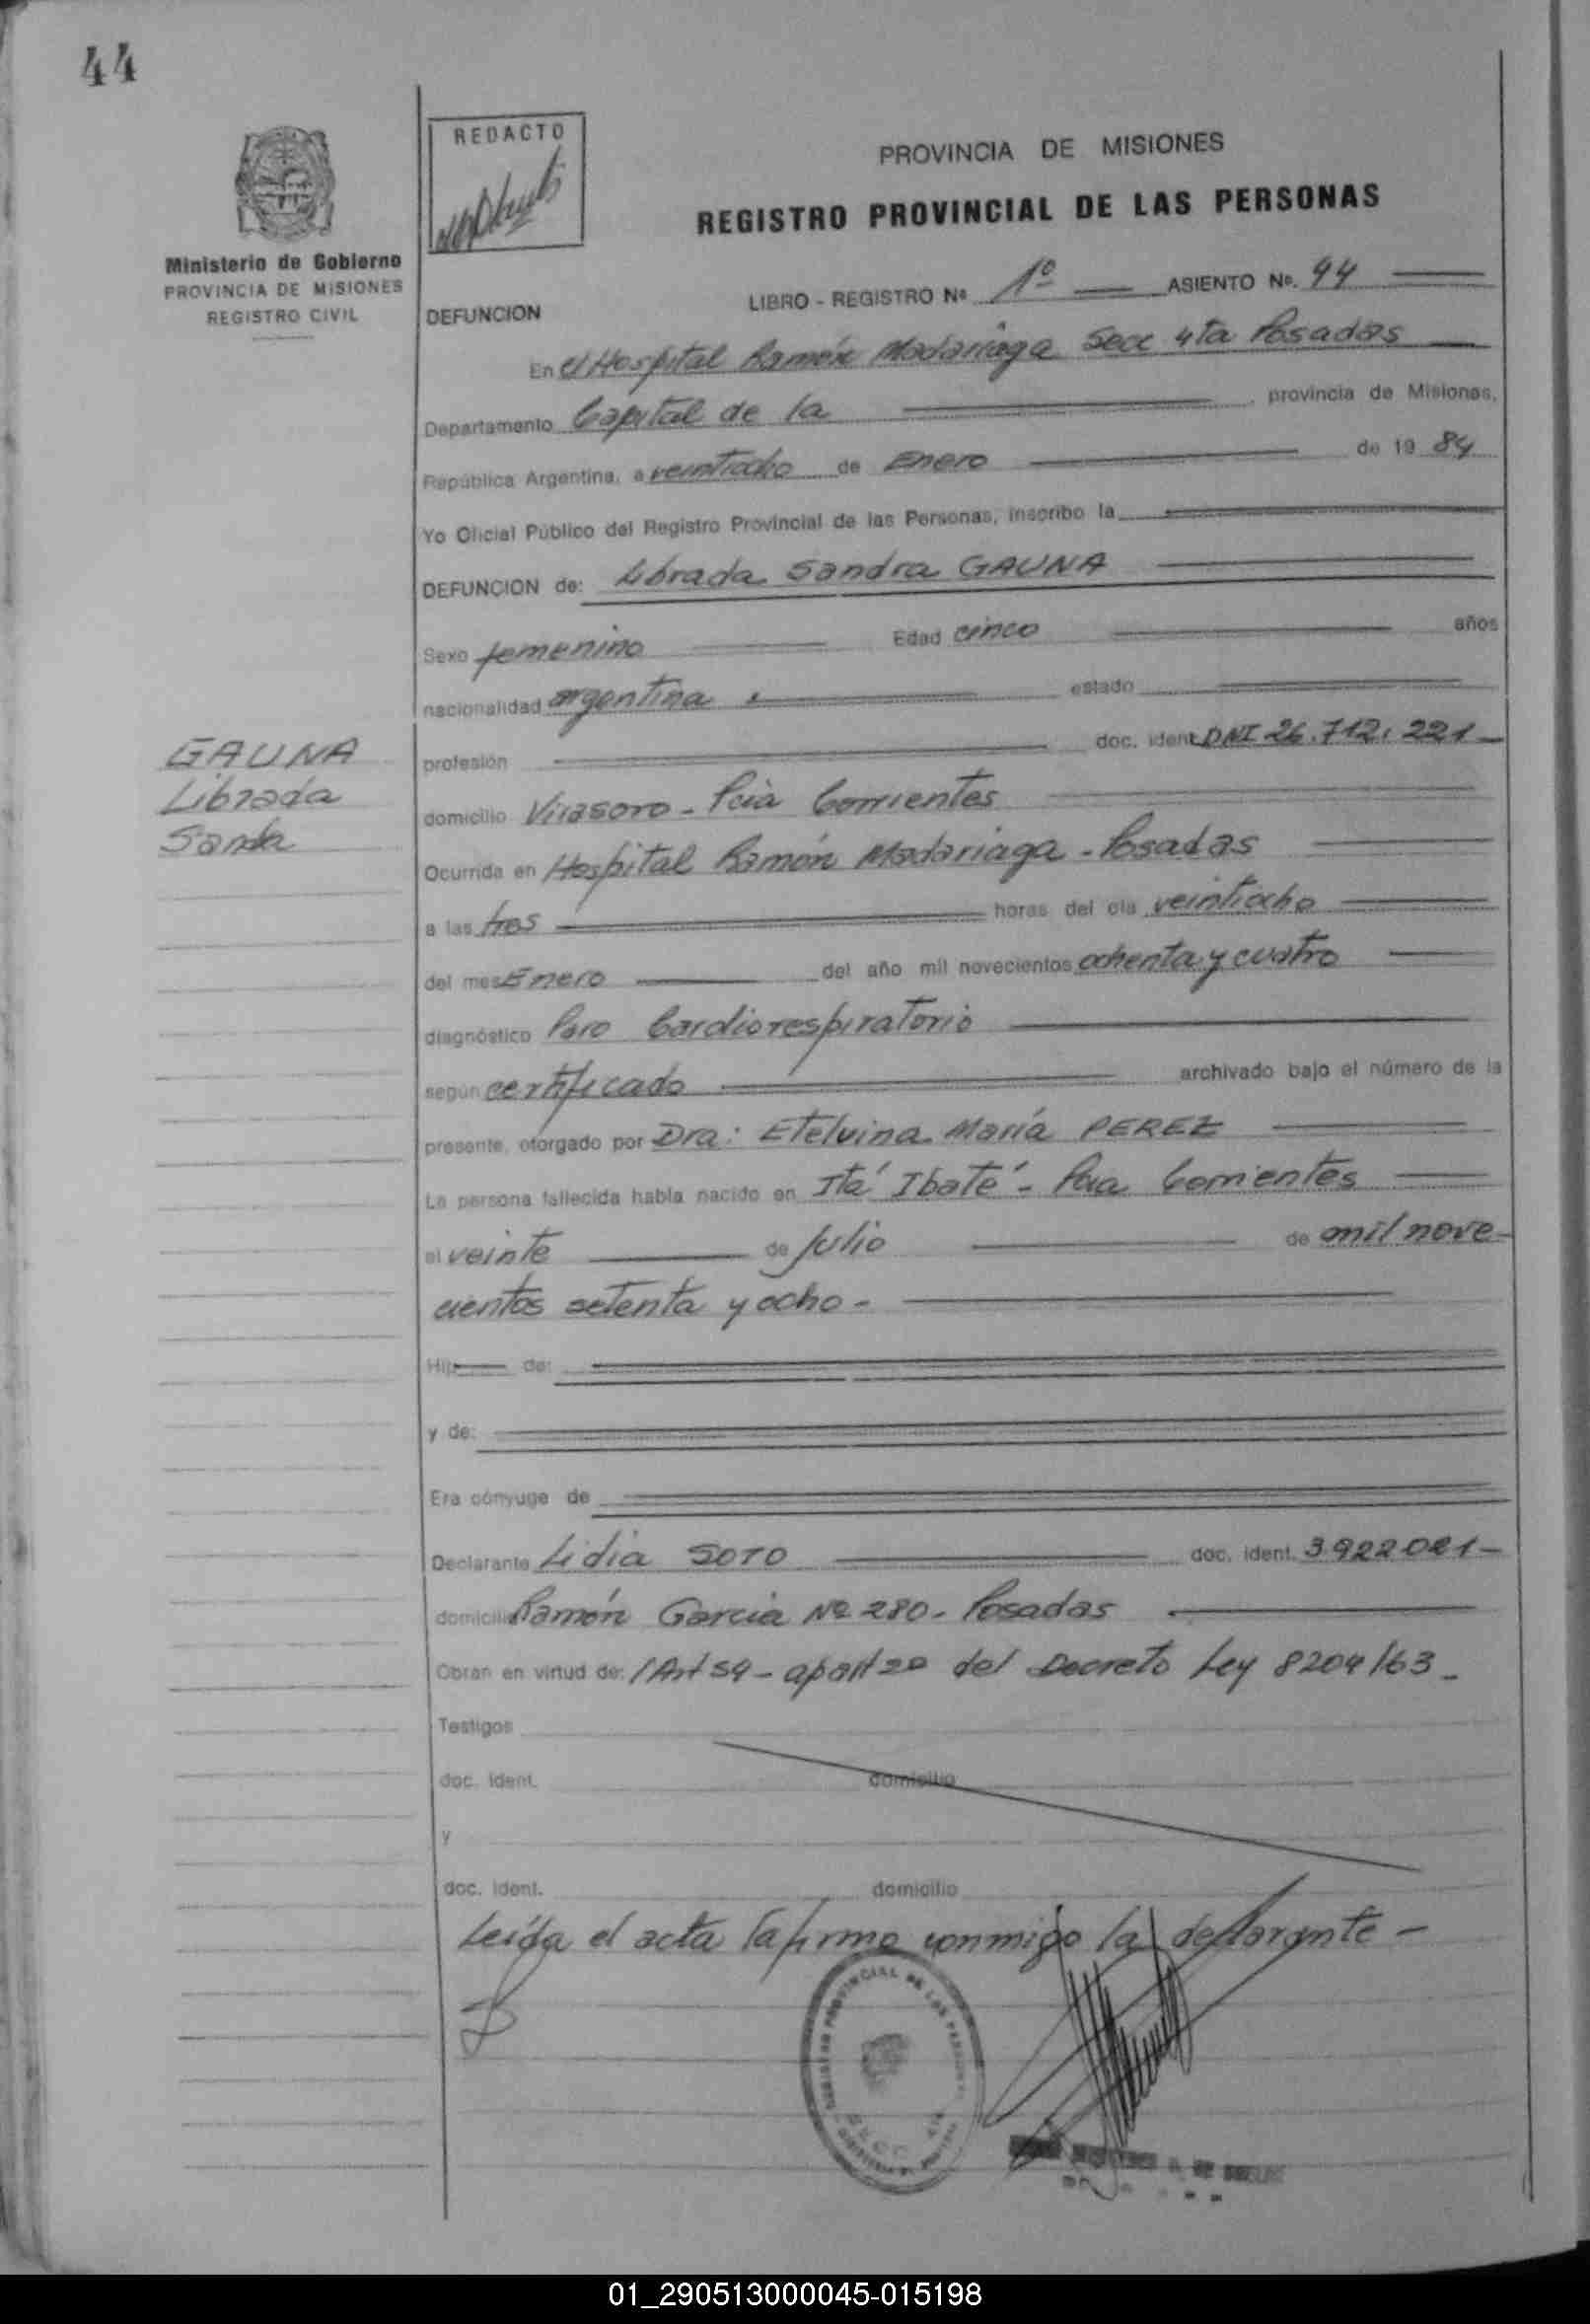 44
REDACTO
PROVINCIA DE MISIONES
REGISTRO PROVINCIAL DE LAS PERSONAS
Ministerio de Gobierno
PROVINCIA DE MISIONES
REGISTRO CIVIL
LIBRO - REGISTRO Nº 1º ASIENTO No. 44
DEFUNCION
En el Hospital Ramón Madariaga Secc 4ta Posadas
Departamento Capital de la provincia de Misiones,
República Argentina, a veintiocho de Enero de 19 84
Yo Oficial Público del Registro Provincial de las Personas, inscribo la
DEFUNCION de: Librada Sandra GAUNA
Sexo femenino Edad cinco años
nacionalidad argentina estado
GAUNA
Librada
Sandra
profesión doc. ident. DNI 26.712.221
domicilio Virasoro - Pcia Corrientes
Ocurrida en Hospital Ramón Madariaga - Posadas
a las tres horas del día veintiocho
del mes Enero del año mil novecientos ochenta y cuatro
diagnóstico Paro Cardiorespiratorio
según certificado archivado bajo el número de la
presente, otorgado por Dra: Etelvina María PEREZ
La persona fallecida había nacido en Itá Ibaté - Pcia Corrientes
el veinte de Julio de mil nove-
cientos setenta y ocho -
Hij de:
y de:
Era cónyuge de
Declarante Lidia SOTO doc. ident. 3922021-
domicilio Ramón Garcia Nº 280 - Posadas
Obran en virtud de: /Art 59 - apart 2º del Decreto Ley 8204/63 -
Testigos
doc. ident. domicilio
y
doc. ident. domicilio
Leída el acta la firma conmigo la declarante -
01_290513000045-015198